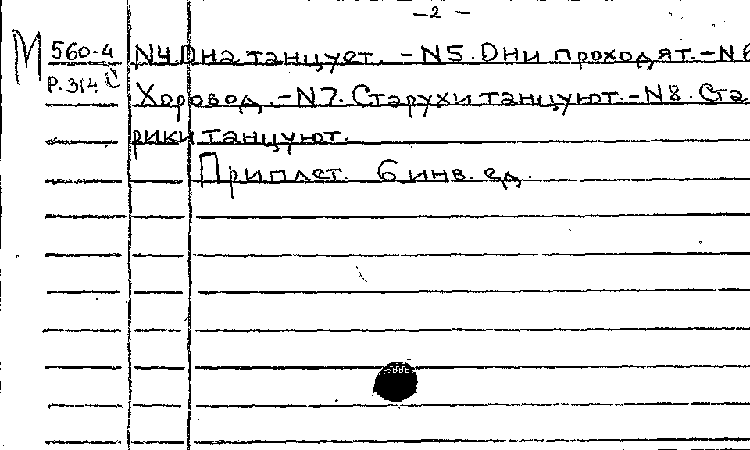 -2-
М 560-4 N4 Она танцует. - N5. Они проходят. - N6
Р.314. С Хоровод. - N7. Старухи танцуют. - N8. Ста
рики танцуют.
Приплет. 6 инв. ед.